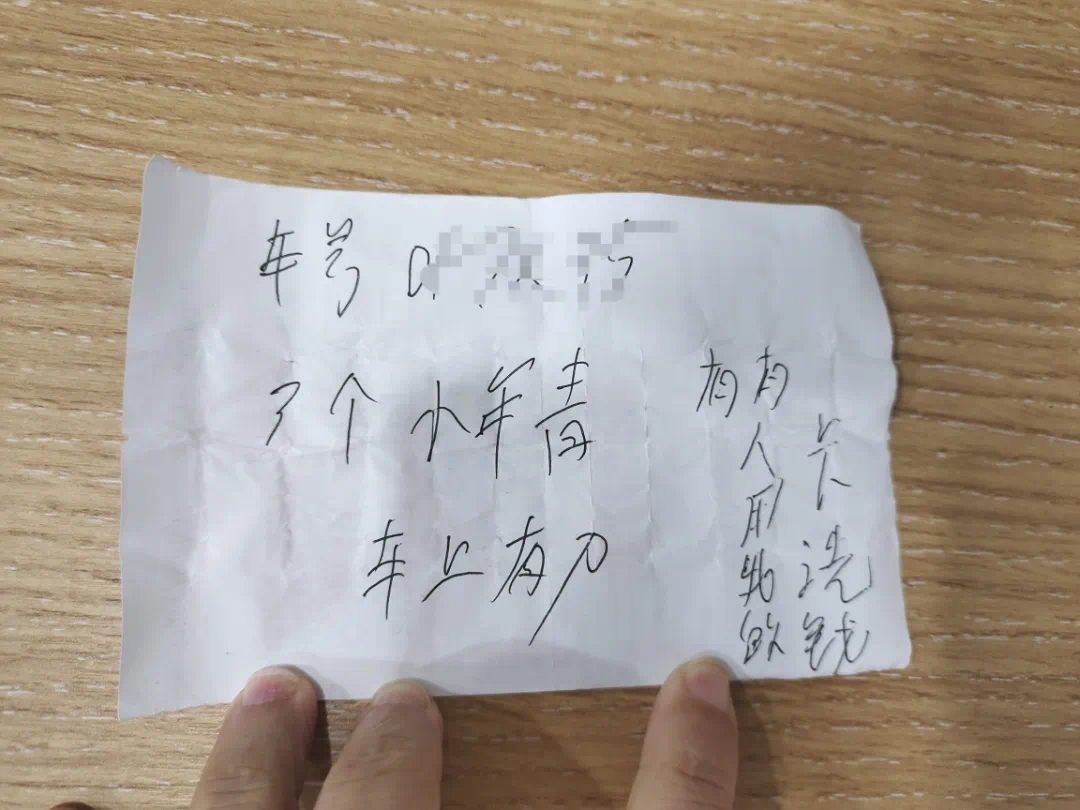 车号
3个 小年青
车上有刀
有有人用我的
卡洗钱